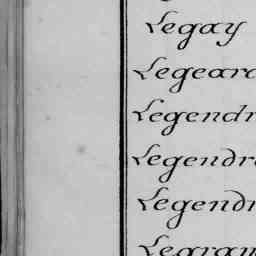 Legay
Legeard
Legendr
Legendr
Legendr
Legran